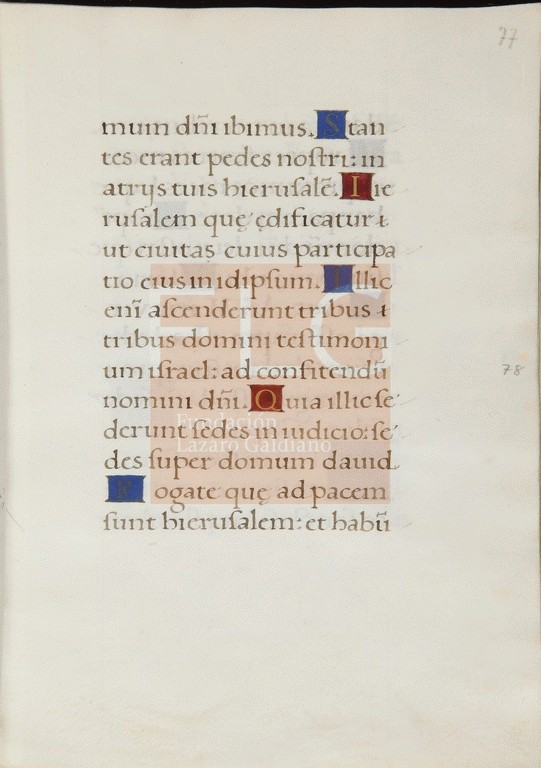 77
mum dñi ibimus. Stan
tes erant pedes noſtri: in
atrijs tuis hieruſalē. Iie
ruſalem quę ędificatur:
ut ciuitas cuius participa
tio eius in idipſum. Illic
eni aſcenderunt tribus:
tribus domini teſtimoni
um iſrael: ad confitendū
nomini dñi. Quia illic ſe
derunt ſedes in iudicio: ſe
des ſuper domum dauid.
Rogate quę ad pacem
ſunt hieruſalem: et habū
78
FLG
Fundación
Lázaro Galdiano